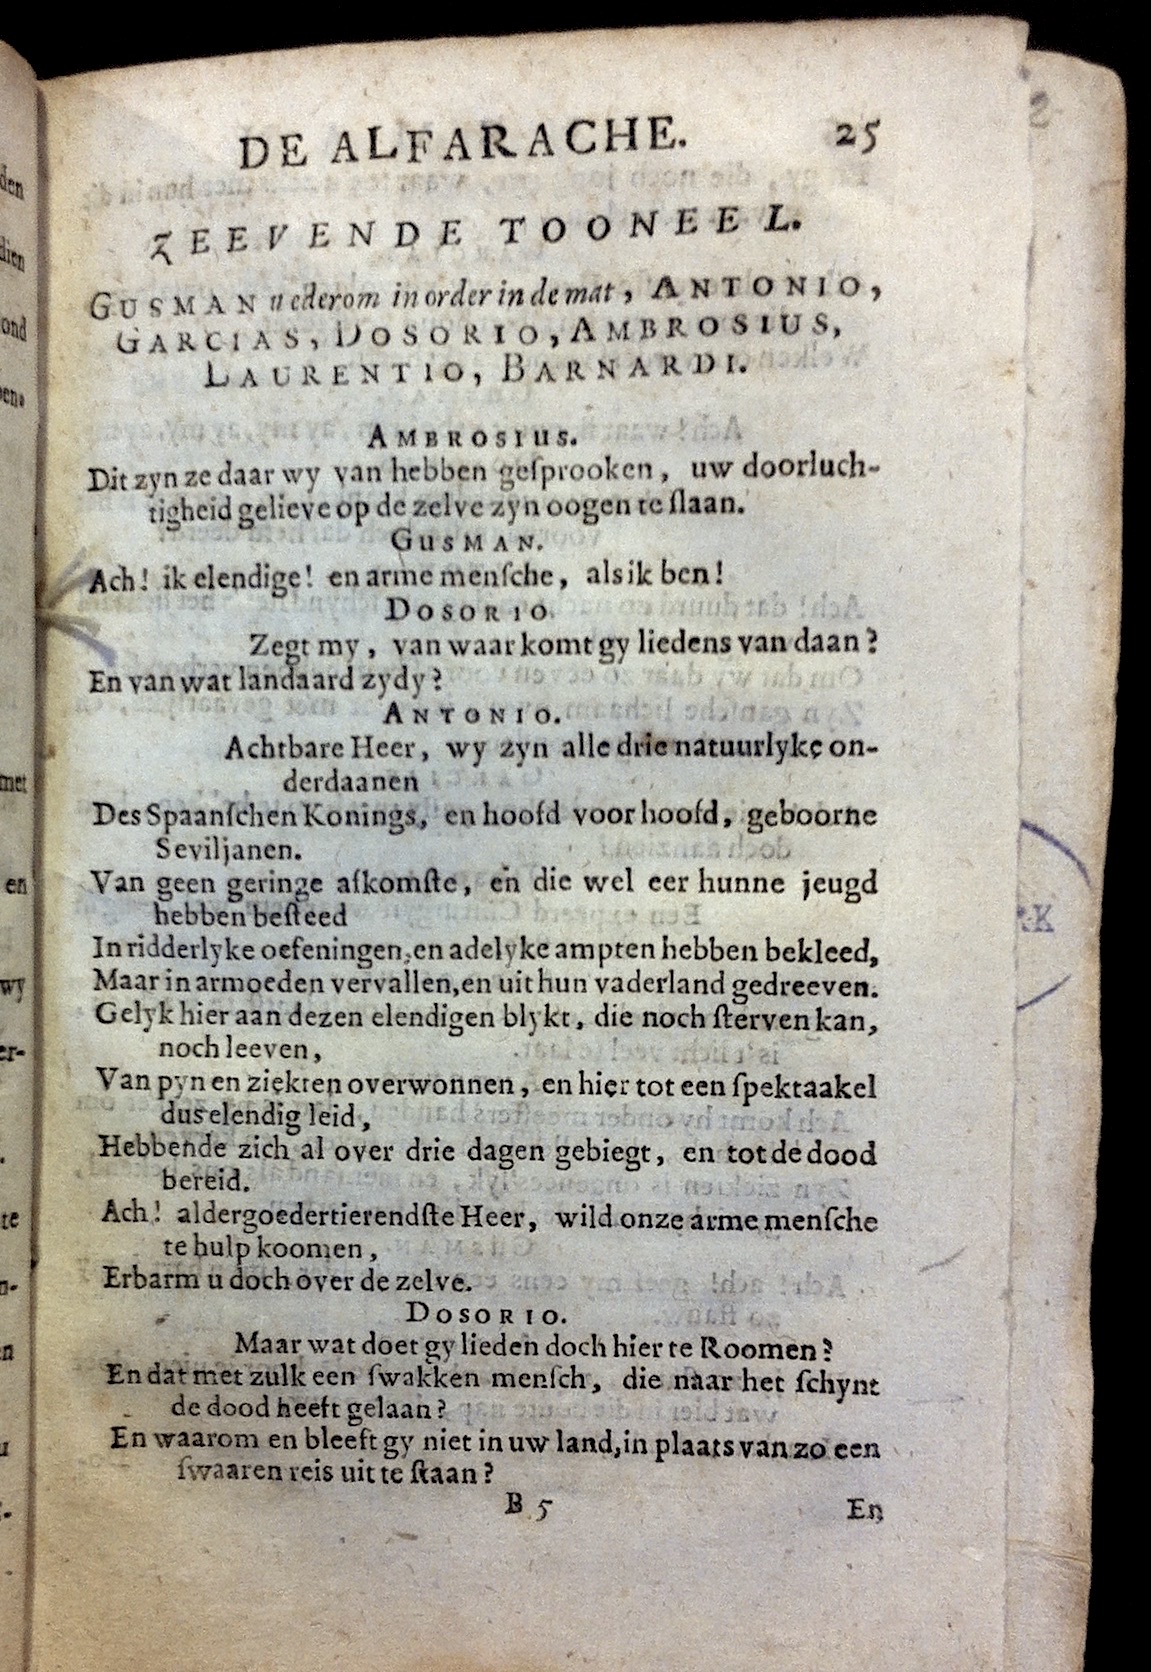 DE ALFARACHE. 25
ZEEVENDE TOONEEL.
GUSMAN wederom in order in de mat, ANTONIO,
GARCIAS, DOSORIO, AMBROSIUS,
LAURENTIO, BARNARDI.
AMBROSIUS.
Dit zyn ze daar wy van hebben geſprooken, uw doorluch-
tigheid gelieve op de zelve zyn oogen te ſlaan.
GUSMAN.
Ach! ik elendige! en arme menſche, als ik ben!
DOSORIO.
Zegt my, van waar komt gy liedens van daan?
En van wat landaard zydy?
ANTONIO.
Achtbare Heer, wy zyn alle drie natuurlyke on-
derdaanen
Des Spaanſchen Konings, en hoofd voor hoofd, geboorne
Seviljanen.
Van geen geringe afkomſte, en die wel eer hunne jeugd
hebben beſteed
In ridderlyke oefeningen, en adelyke ampten hebben bekleed,
Maar in armoeden vervallen, en uit hun vaderland gedreeven.
Gelyk hier aan dezen elendigen blykt, die noch ſterven kan,
noch leeven,
Van pyn en ziekten overwonnen, en hier tot een ſpektaakel
dus elendig leid,
Hebbende zich al over drie dagen gebiegt, en tot de dood
bereid.
Ach! aldergoedertierendſte Heer, wild onze arme menſche
te hulp koomen,
Erbarm u doch over de zelve.
DOSORIO.
Maar wat doet gy lieden doch hier te Roomen?
En dat met zulk een ſwakken menſch, die naar het ſchynt
de dood heeft gelaan?
En waarom en bleeft gy niet in uw land, in plaats van zo een
ſwaaren reis uit te ſtaan?
B 5 En